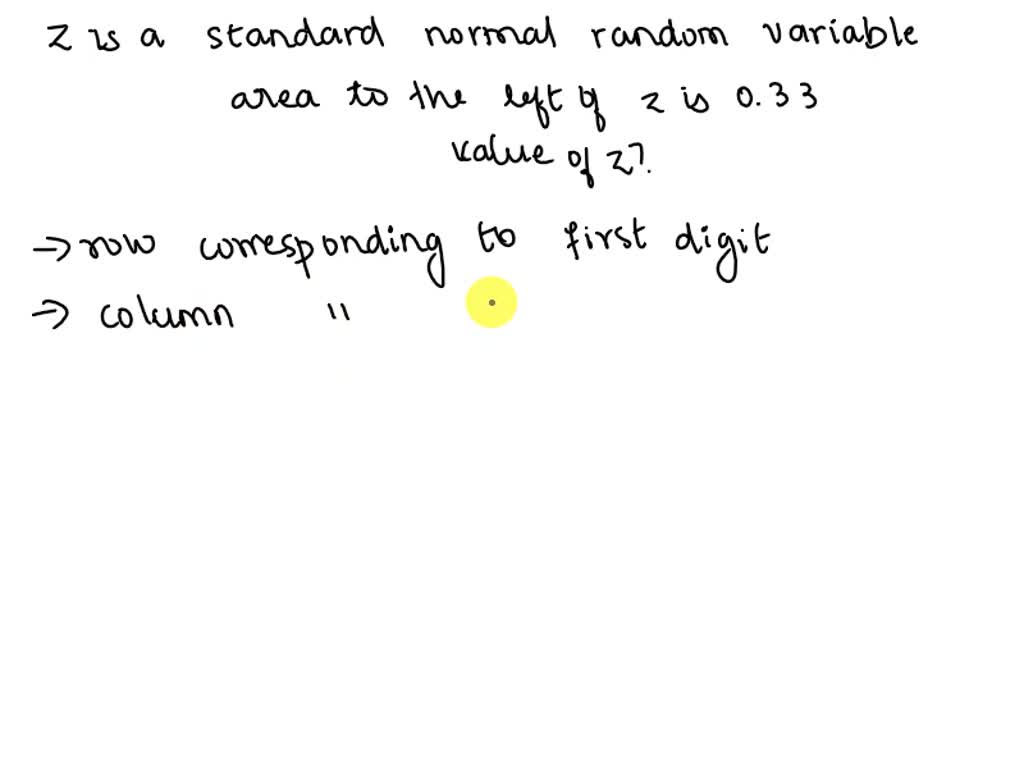 z is a standard normal random variable
area to the left of z is 0.33
value of z?.
→ row corresponding to first digit
→ column "